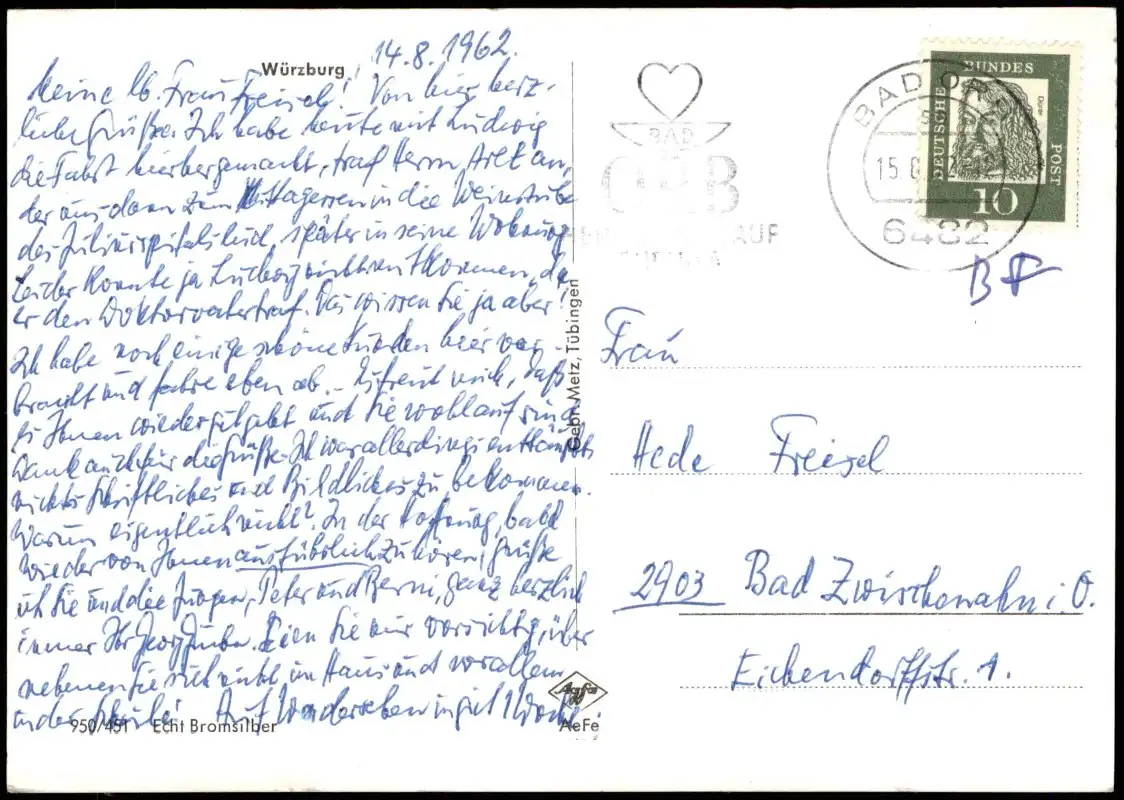 Würzburg, 14.8.1962.
Meine lb. Frau Freisel! Von hier herz-
liche Grüße. Ich habe heute mit Ludwig
die Fahrt hierher gemacht, traf Herrn Arlt an,
der uns dann zum Mittagessen in die Weinstube
des Juliusspitals lud, später in seine Wohnung.
Leider konnte ja Ludwig nicht mitkommen, da
er den Doktorvater traf. Das wissen Sie ja aber!
Ich habe noch einige schöne Stunden hier ver-
bracht und fahre eben ab. – Es freut mich, daß
es Ihnen wieder gut geht und Sie wohlauf sind.
Dank auch für die Grüße. Ich war allerdings enttäuscht
nichts Schriftliches und Bildliches zu bekommen.
Warum eigentlich nicht? In der Hoffnung, bald
wieder von Ihnen ausführlich zu hören, grüße
ich Sie und die Jungen, Peter und Berni, ganz herzlich
immer Ihr Georg
Seien Sie nur vorsichtig, über
nehmen Sie sich nicht im Haus und vor allem
in der Schule! Auf Wiedersehen in gut 1 Woche
950/451 Echt Bromsilber
AeFe
Agfa
Gebr. Metz, Tübingen
BAD
ORB
AUF
BAD ORB
15.8.
6482
DEUTSCHE
BUNDES
POST
Dürer
10
Frau
Hede Freisel
2903 Bad Zwischenahn i. O.
Eichendorffstr. 1.